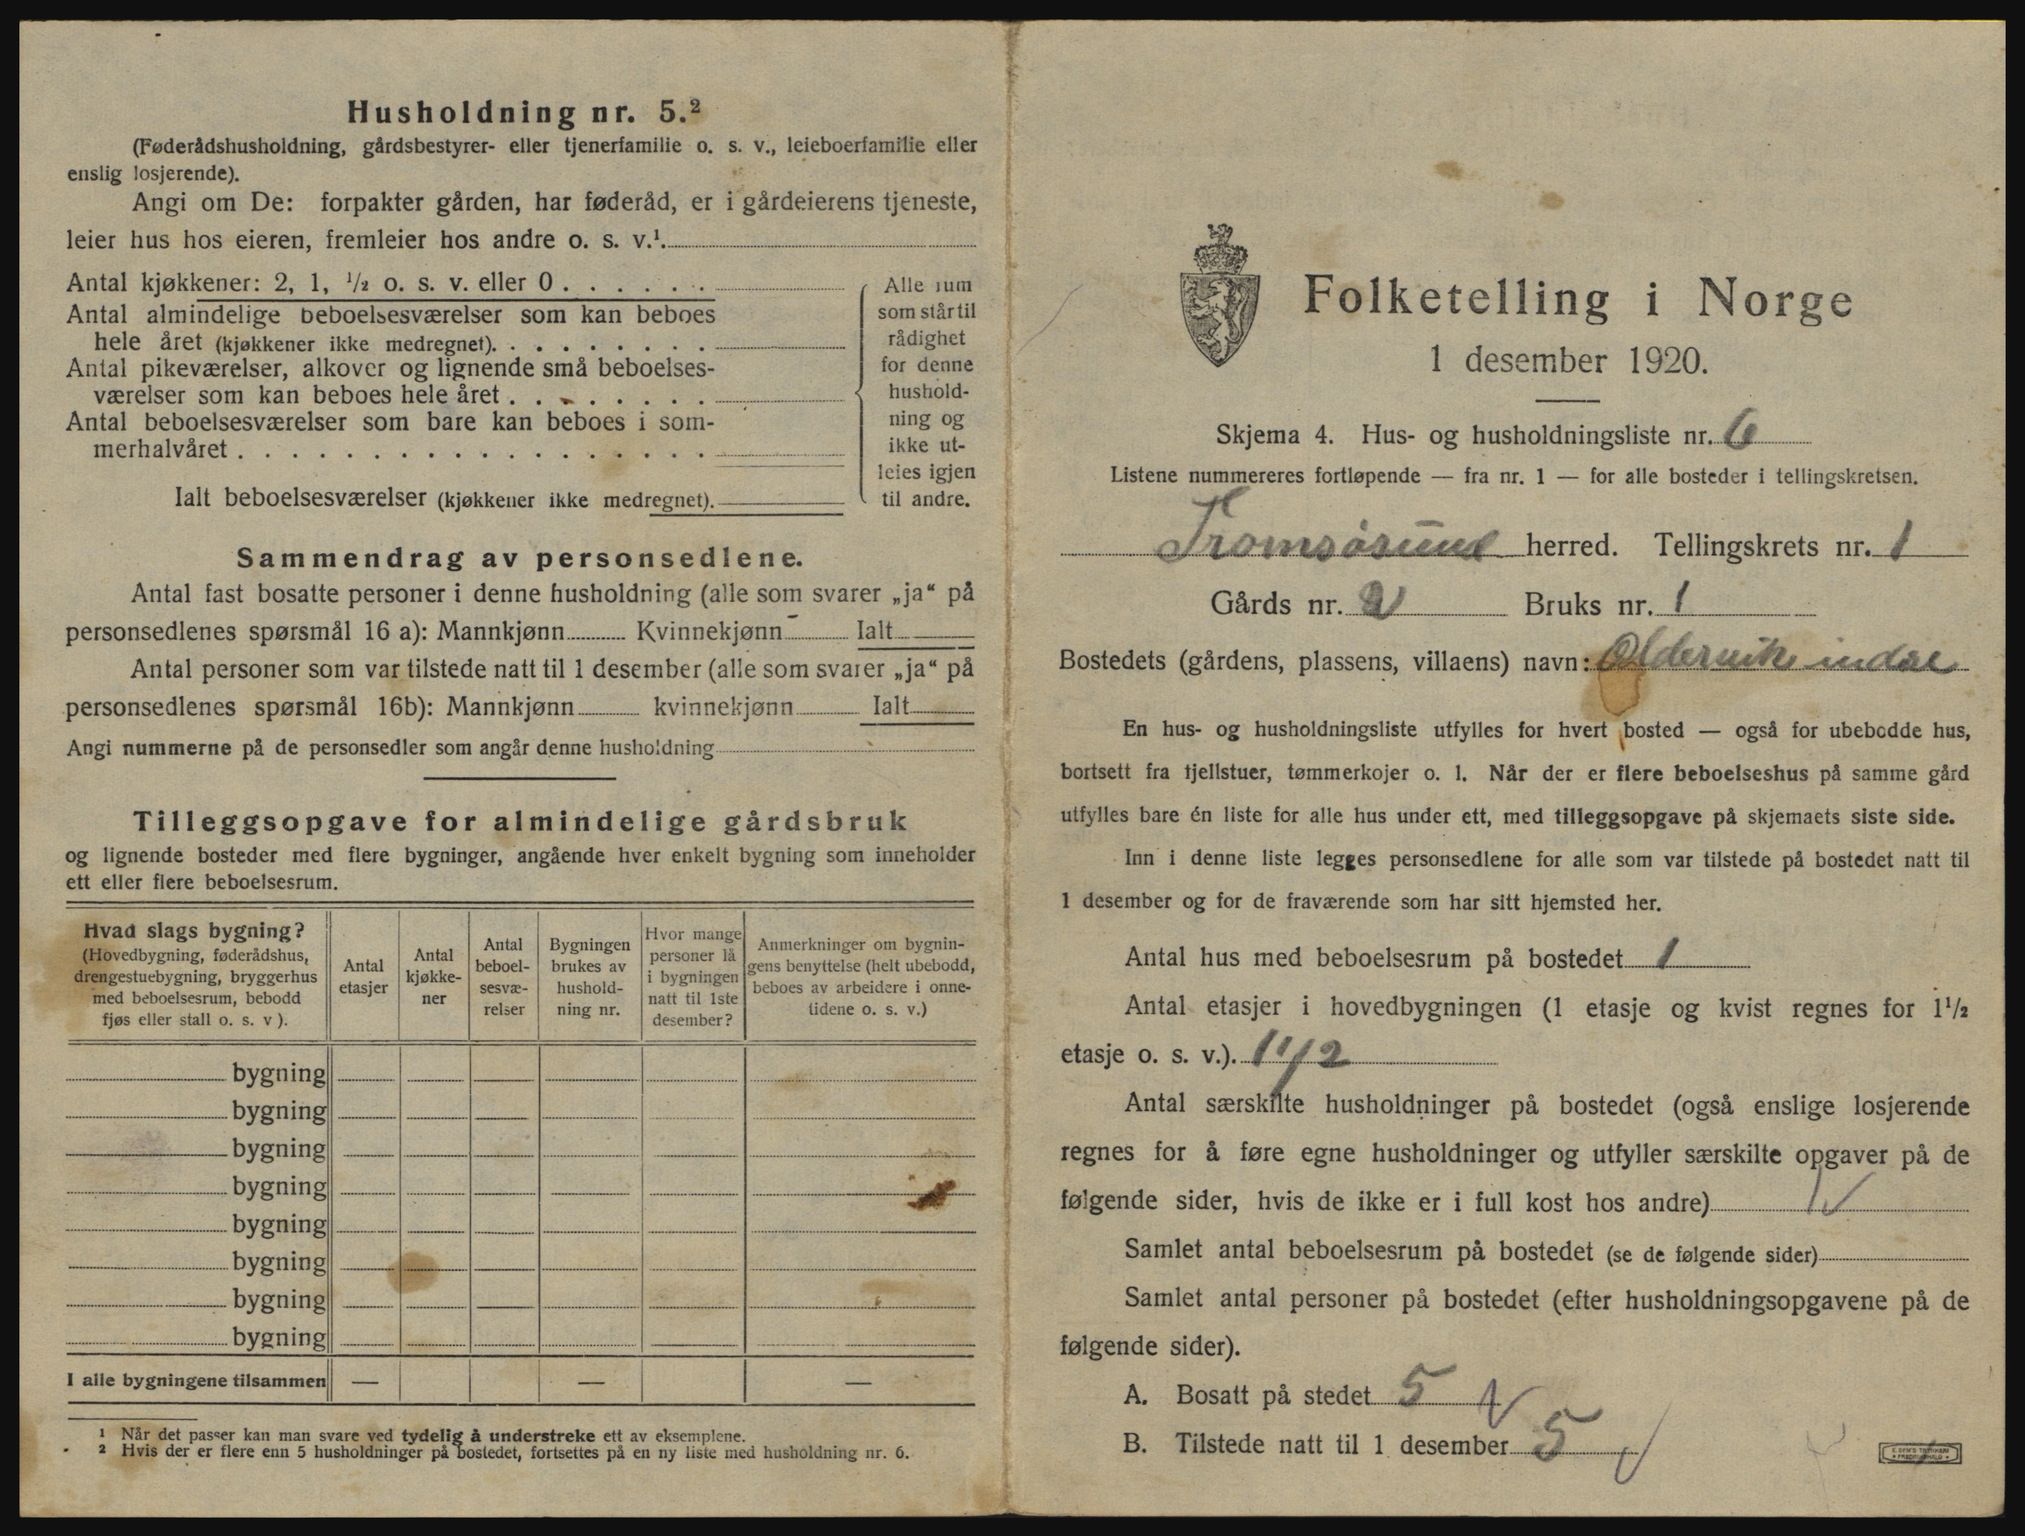 Husholdning nr. 5.²
(Føderådshusholdning, gårdsbestyrer- eller tjenerfamilie o. s. v., leieboerfamilie eller
enslig losjerende).
Angi om De: forpakter gården, har føderåd, er i gårdeierens tjeneste,
leier hus hos eieren, fremleier hos andre o. s. v.¹.
Antal kjøkkener: 2, 1, ½ o. s. v. eller 0 . . . . . .
Antal almindelige beboelsesværelser som kan beboes
hele året (kjøkkener ikke medregnet). . . . . . . . .
Antal pikeværelser, alkover og lignende små beboelses-
værelser som kan beboes hele året . . . . . . . .
Antal beboelsesværelser som bare kan beboes i som-
merhalvåret . . . . . . . . . . . . . . . . . .
Ialt beboelsesværelser (kjøkkener ikke medregnet).
Alle rum
som står til
rådighet
for denne
hushold-
ning og
ikke ut-
leies igjen
til andre.
Sammendrag av personsedlene.
Antal fast bosatte personer i denne husholdning (alle som svarer „ja“ på
personsedlenes spørsmål 16 a): Mannkjønn Kvinnekjønn Ialt
Antal personer som var tilstede natt til 1 desember (alle som svarer „ja“ på
personsedlenes spørsmål 16b): Mannkjønn kvinnekjønn Ialt
Angi nummerne på de personsedler som angår denne husholdning
Tilleggsopgave for almindelige gårdsbruk
og lignende bosteder med flere bygninger, angående hver enkelt bygning som inneholder
ett eller flere beboelsesrum.
Hvad slags bygning?
(Hovedbygning, føderådshus,
drengestuebygning, bryggerhus
med beboelsesrum, bebodd
fjøs eller stall o. s. v ).
Antal
etasjer
Antal
kjøkke-
ner
Antal
beboel-
sesvæ-
relser
Bygningen
brukes av
hushold-
ning nr.
Hvor mange
personer lå
i bygningen
natt til 1ste
desember?
Anmerkninger om bygnin-
gens benyttelse (helt ubebodd,
beboes av arbeidere i onne-
tidene o. s. v.)
bygning
bygning
bygning
bygning
bygning
bygning
bygning
bygning
I alle bygningene tilsammen — — —
¹ Når det passer kan man svare ved tydelig å understreke ett av eksemplene.
² Hvis der er flere enn 5 husholdninger på bostedet, fortsettes på en ny liste med husholdning nr. 6.
Folketelling i Norge
1 desember 1920.
Skjema 4. Hus- og husholdningsliste nr. 6
Listene nummereres fortløpende — fra nr. 1 — for alle bosteder i tellingskretsen.
Tromsøsund herred. Tellingskrets nr. 1
Gårds nr. 2 Bruks nr. 1
Bostedets (gårdens, plassens, villaens) navn: Oldervik indre
En hus- og husholdningsliste utfylles for hvert bosted — også for ubebodde hus,
bortsett fra fjellstuer, tømmerkojer o. l. Når der er flere beboelseshus på samme gård
utfylles bare én liste for alle hus under ett, med tilleggsopgave på skjemaets siste side.
Inn i denne liste legges personsedlene for alle som var tilstede på bostedet natt til
1 desember og for de fraværende som har sitt hjemsted her.
Antal hus med beboelsesrum på bostedet 1
Antal etasjer i hovedbygningen (1 etasje og kvist regnes for 1½
etasje o. s. v.). 1 1/2
Antal særskilte husholdninger på bostedet (også enslige losjerende
regnes for å føre egne husholdninger og utfyller særskilte opgaver på de
følgende sider, hvis de ikke er i full kost hos andre) 1
Samlet antal beboelsesrum på bostedet (se de følgende sider)
Samlet antal personer på bostedet (efter husholdningsopgavene på de
følgende sider).
A. Bosatt på stedet 5
B. Tilstede natt til 1 desember 5